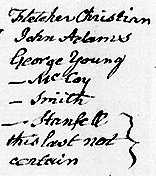 Fletcher Christian
John Adams
George Young
– McCoy
– Smith
– Stanfell
this last not
certain